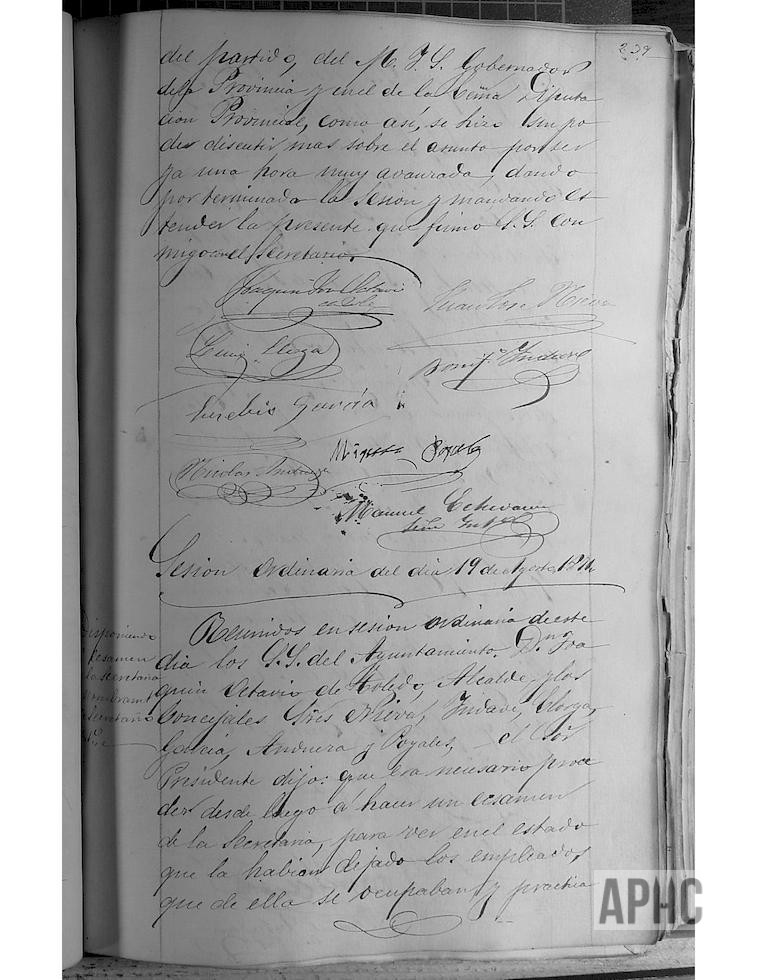 239
del partido, del M. I. S. Gobernador
de la Provincia y en el de la Exma Diputa
cion Provincial, como asi, se hizo sin po
der discutir mas sobre el asunto por ser
ya una hora muy avanzada, dando
por terminada la Sesion y mandando es
tender la presente que firmó S. S. con
migo en el Secretario.
Joaquin Octavio
de Toledo
Juan Jose Nieva
Luis Llorga
Bonif.º Yndave
Eusebio Garcia
Miguel Poyales
Nicolas Andueza
Manuel Echevarria
Srio
Sesion Ordinaria del dia 19 de Agosto 187
Disponiendo
ecsamen
la secretaria
nombramt
Secretario
Reunidos en sesion ordinaria de este
dia los S.S. del Ayuntamiento, Dn Joa
quin Octavio de Toledo, Alcalde, y los
Concejales Sres Nieva, Yndave, Llorga,
Garcia, Andueza y Poyales, el Sor
Presidente dijo: que era necesario proce
der desde luego a hacer un ecsamen
de la Secretaria, para ver en el estado
que la habian dejado los empleados,
que de ella se ocupaban, y practica
APHC